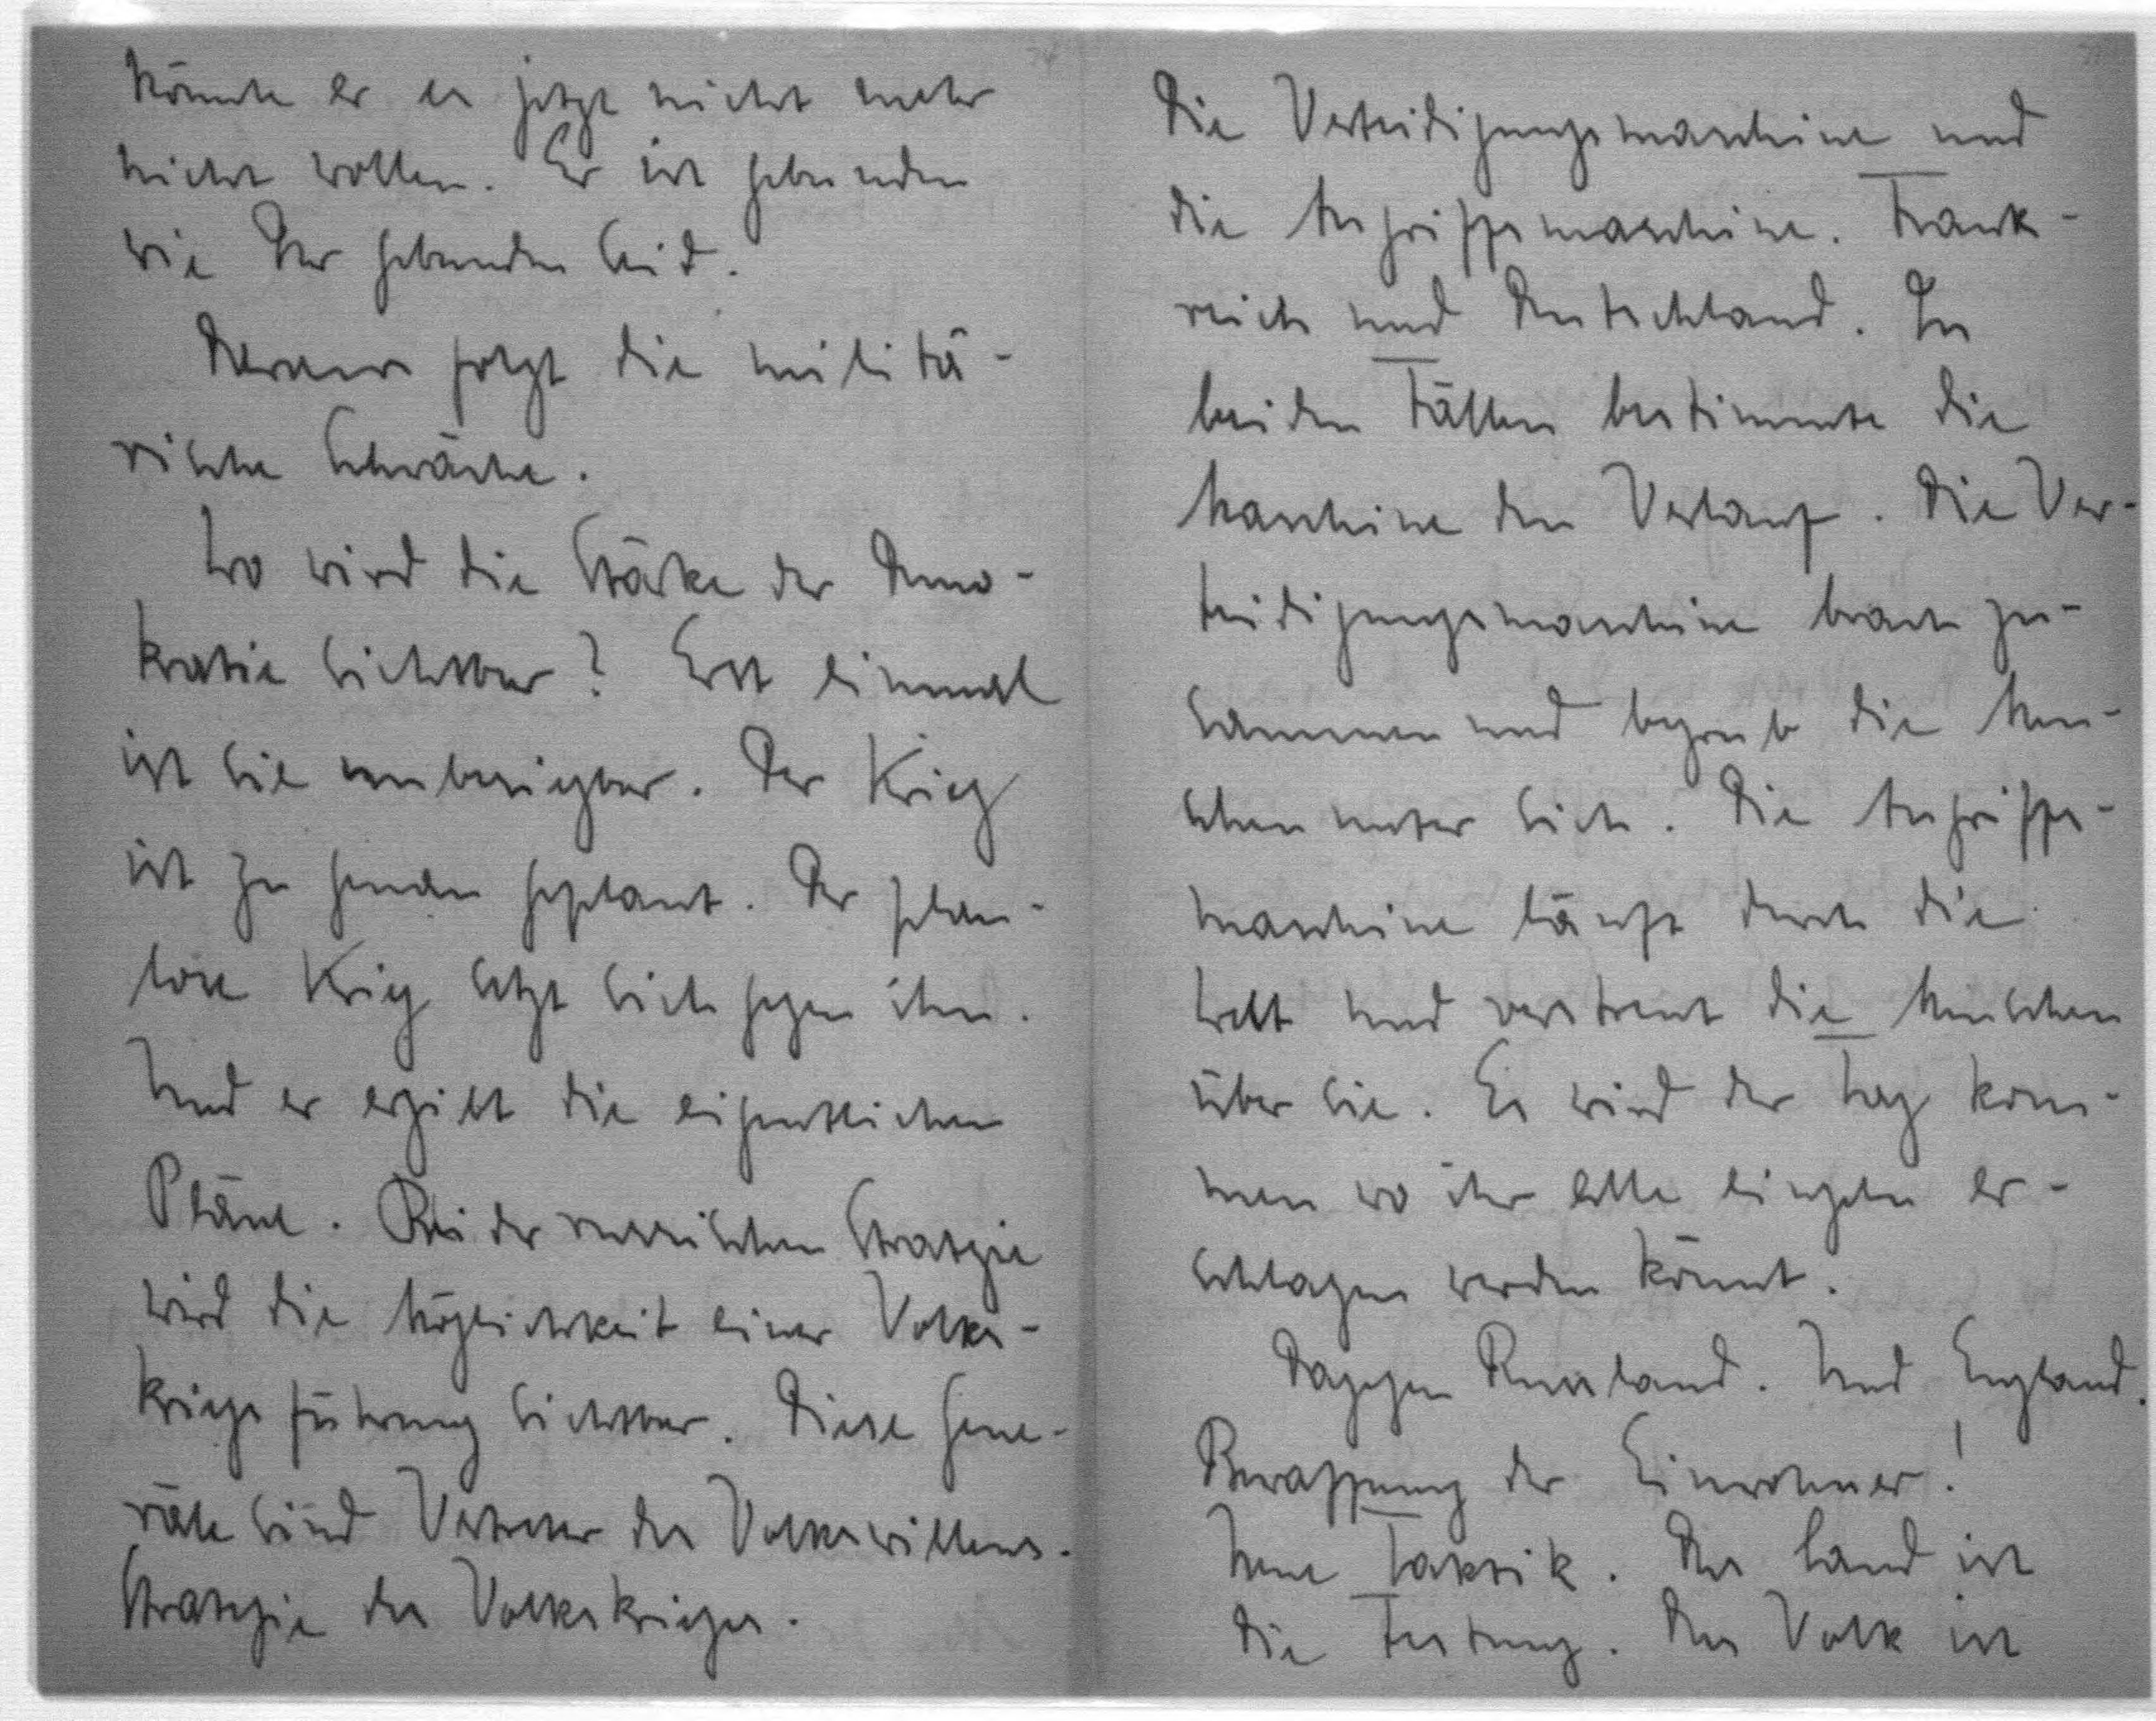 könnte er es jetzt nicht mehr
nicht wollen. Er ist gebunden
wie Ihr gebunden seid.
Daraus folgt die militä-
rische Schwäche.
Wo wird die Stärke der Demo-
kratie sichtbar? Erst einmal
ist sie unbesiegbar. Der Krieg
ist zu genau geplant. Der plan-
lose Krieg setzt sich gegen ihn.
Und er ergibt die eigentlichen
Pläne. Bei der russischen Strategie
wird die Möglichkeit einer Volks-
kriegsführung sichtbar. Diese Gene-
räle sind Vertreter des Volkswillens.
Strategie des Volkskrieges.
Die Verteidigungsmaschine und
die Angriffsmaschine. Frank-
reich und Deutschland. In
beiden Fällen bestimmte die
Maschine den Verlauf. Die Ver-
teidigungsmaschine brach zu-
sammen und begrub die Men-
schen unter sich. Die Angriffs-
maschine läuft durch die
Welt und verstreut die Menschen
über sie. Es wird der Tag kom-
men wo ihr alle einzeln er-
schlagen werden könnt.
Dagegen Russland. Und England.
Bewaffnung der Einwohner!
Neue Taktik. Das Land ist
die Festung. Das Volk ist